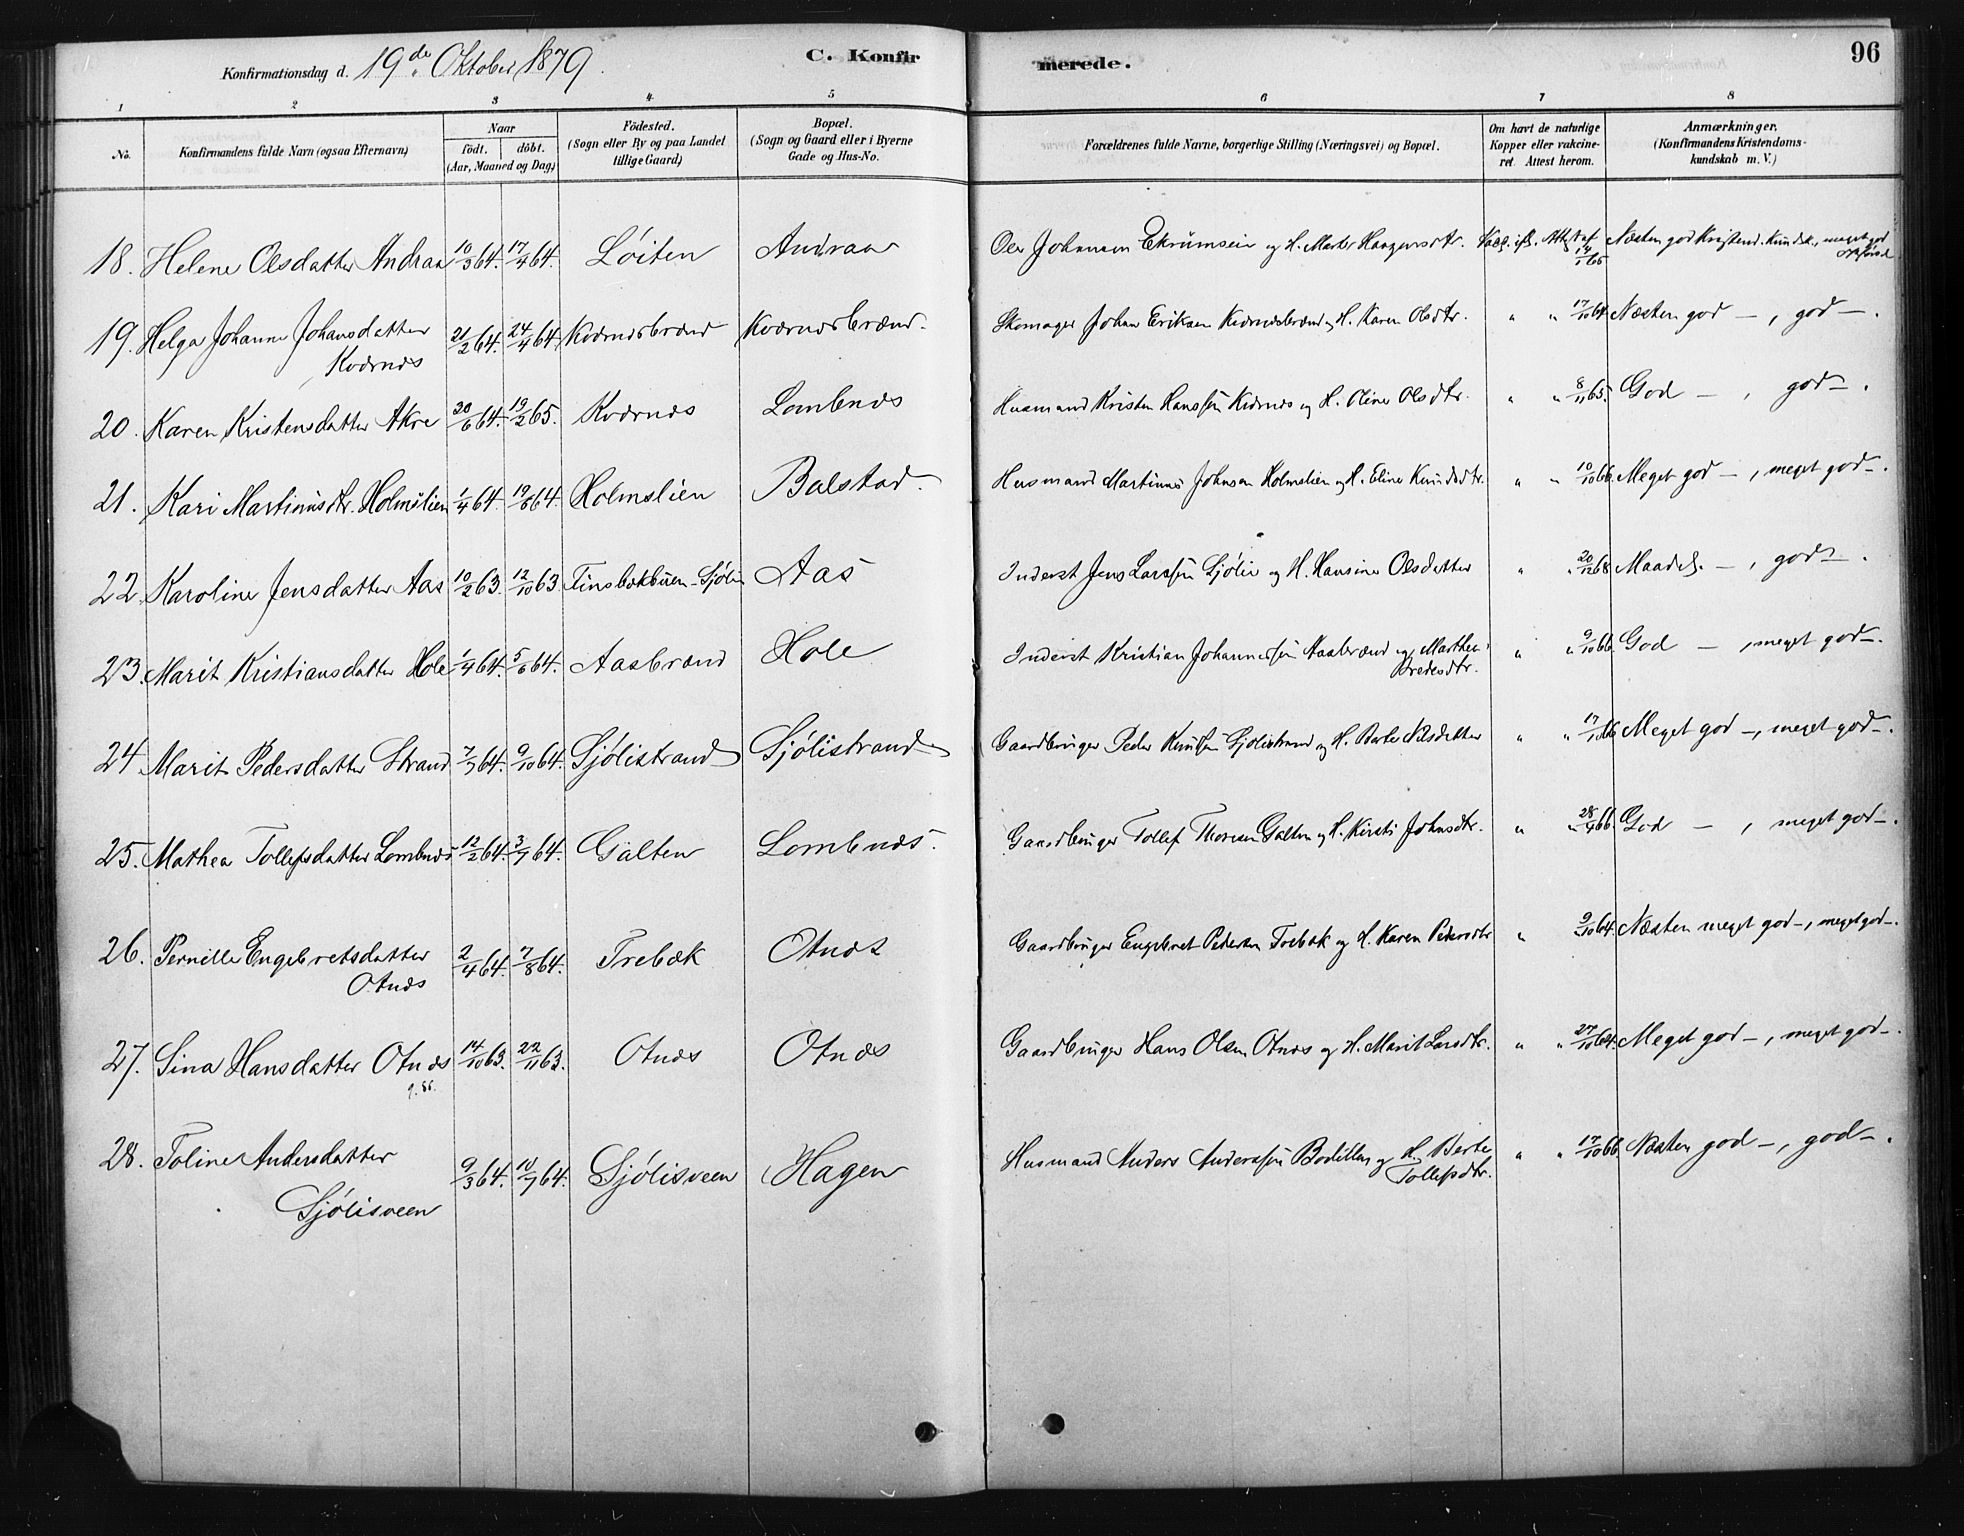 Konfirmationsdag d. 19de Oktober 1879. C. Konfirmerede. 96
1 2 3 4 5 6 7 8
No. Konfirmandens fulde Navn (ogsaa Efternavn) Naar födt. döbt. (Aar, Maaned og Dag) Födested. (Sogn eller By og paa Landet tillige Gaard) Bopæl. (Sogn og Gaard eller i Byerne Gade og Hus-No. Forældrenes fulde Navne, borgerlige Stilling (Næringsvei) og Bopæl. Om havt de naturlige Kopper eller vakcineret. Attest herom. Anmærkninger. (Konfirmandens Kristendomskundskab m. V.)
18. Helene Olsdatter Andraa 10/3 64. 17/4 64. Löiten Andraa Ole Johansen Ekrumseie og H. Marte Haagensdtr. Vacc. ifl. Att. af Næsten god Kristend. Kundsk., meget god
19. Helga Johanne Johansdatter Kværnæs 21/2 64. 24/4 64 Kværnæsbrænd Kværnæsbrænd. Skomager Johan Eriksen Kværnæsbrænd og H. Karen Olsdtr. " " 17/10 64. Næsten god —, god —.
20. Karen Kristensdatter Akre 20/6 64. 19/2 65. Kværnæs Lombnæs Husmand Kristen Hanssen Kværnæs og H. Oline Olsdtr. " " 8/11 65. God —, god —.
21. Kari Martinusdtr. Holmslien 1/4 64. 19/6 64. Holmslien Balstad. Husmand Martinus Johnsen Holmslien og H. Eline Knudsdtr. " " 10/10 66. Meget god —, meget god —.
22. Karoline Jensdatter Aas 10/2 63. 12/10 63. Finsbækbuen-Sjölie Aas Inderst Jens Larssen Sjölie og H. Hansine Olsdatter " " 20/12 68. Maadel. —, god —.
23. Marit Kristiansdatter Hole 1/4 64. 5/6 64. Aasbrænd Hole Inderst Kristian Johannessen Aasbrænd og Marthe Bredesdtr. " " 9/10 66. God —, meget god —.
24. Marit Pedersdatter Strand 7/7 64. 9/10 64. Sjölistrand Sjölistrand Gaardbruger Peder Knutsen Sjölistrand og H. Berte Nilsdatter " " Meget god —, meget god —.
25. Mathea Tollefsdatter Lombnæs 12/2 64. 3/7 64. Galten Lombnæs. Gaardbruger Tollef Thoresen Galten og H. Kirsti Johnsdtr. " " 28/4 66. God —, meget god —.
26. Pernille Engebretsdatter Otnæs 2/4 64. 7/8 64. Trebæk Otnæs Gaardbruger Engebret Pedersen Trebæk og H. Karen Pedersdtr " " 9/10 64. Næsten meget god —, meget god —.
27. Sina Hansdatter Otnæs 14/10 63. 22/11 63. Otnæs Otnæs Gaardbruger Hans Olsen Otnæs og H. Marit Larsdtr. " " 27/10 64. Meget god —, meget god —.
28. Toline Andersdatter Sjölisveen 9/3 64. 10/7 64. Sjölisveen Hagen Husmand Anders Anderssen og H. Berte Tollefsdtr. " " 17/10 66. Næsten god —, god —.